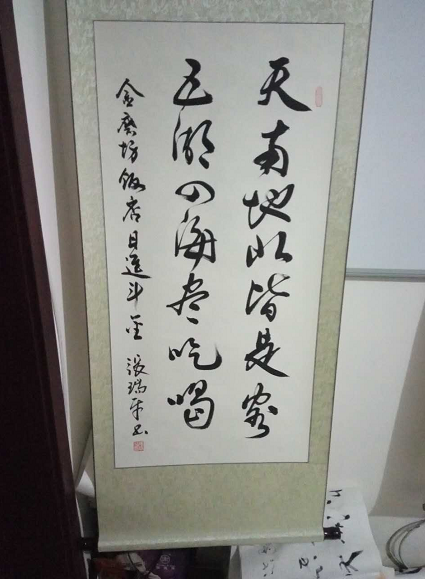 天南地北皆是客
五湖四海尽吃喝
金磨坊饭店日进斗金 张瑞平书